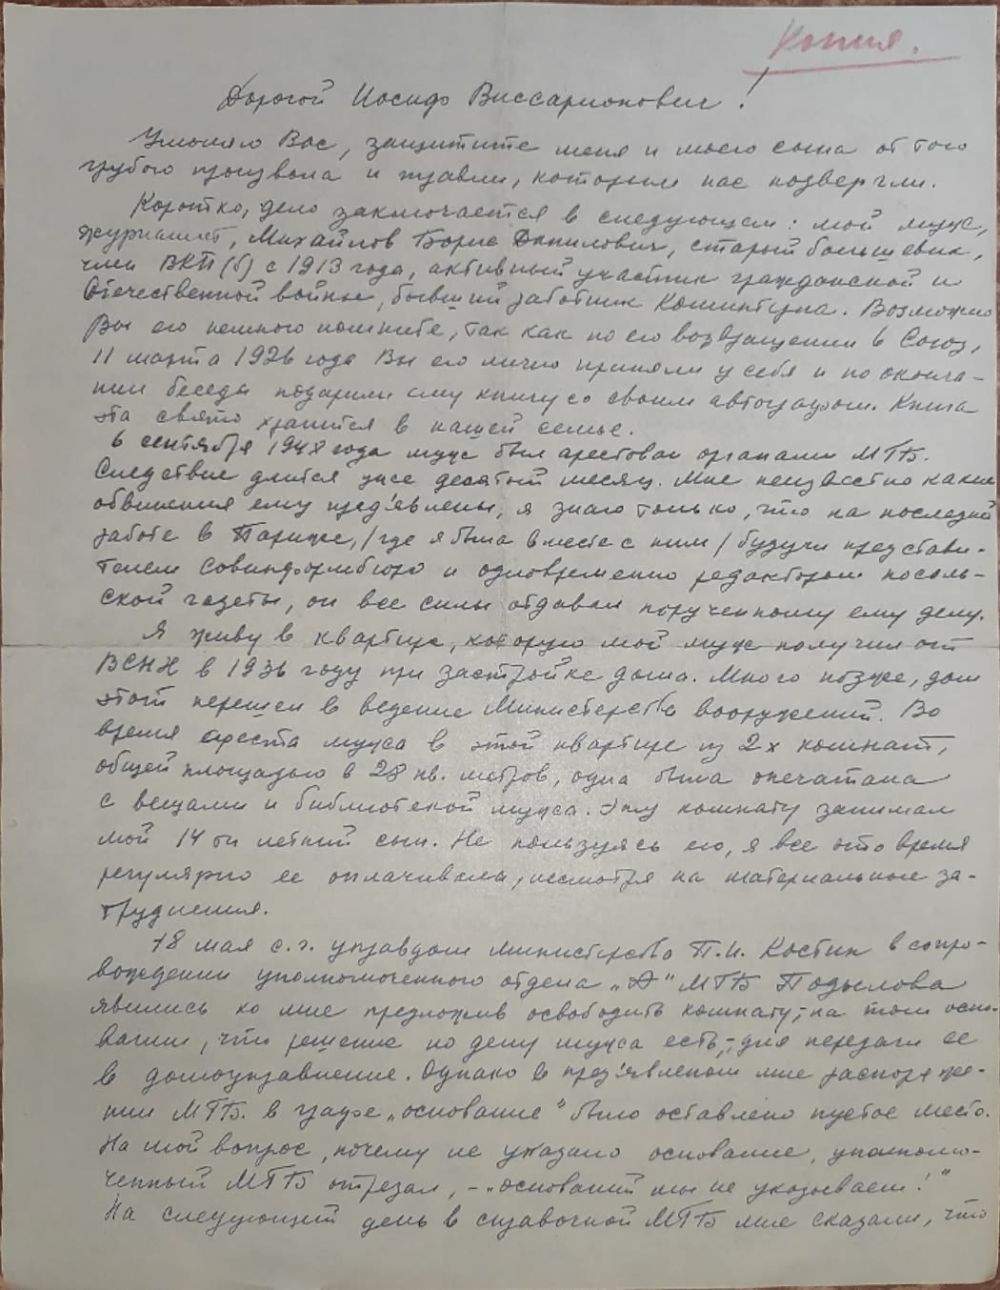 Копия.
Дорогой Иосиф Виссарионович!
Умоляю Вас, защитите меня и моего сына от того
грубого произвола и травли, которым нас подвергли.
Коротко, дело заключается в следующем: мой муж,
журналист, Михайлов Борис Данилович, старый большевик,
член ВКП(б) с 1913 года, активный участник гражданской и
Отечественной войны, бывший работник Коминтерна. Возможно
Вы его немного помните, так как по его возвращении в Союз,
11 марта 1926 года Вы его лично приняли у себя и по оконча-
нии беседы подарили ему книгу со своим автографом. Книга
эта свято хранится в нашей семье.
6 сентября 1948 года муж был арестован органами МГБ.
Следствие длится уже десятый месяц. Мне неизвестно какие
обвинения ему пред'явлены, я знаю только, что на последней
работе в Париже, /где я была вместе с ним/ будучи представи-
телем Совинформбюро и одновременно редактором посоль-
ской газеты, он все силы отдавал порученному ему делу.
Я живу в квартире, которую мой муж получил от
ВСНХ в 1936 году при застройке дома. Много позже, дом
этот перешел в ведение Министерства вооружений. Во
время ареста мужа в этой квартире из 2х комнат,
общей площадью в 28 кв. метров, одна была опечатана
с вещами и библиотекой мужа. Эту комнату занимал
мой 14ти летний сын. Не пользуясь ею, я все это время
регулярно ее оплачивала, несмотря на материальные за-
труднения.
18 мая с.г. управдом министерства П.И. Костин в сопро-
вождении уполномоченного отдела „А" МГБ Подылова
явились ко мне предложив освободить комнату,- на том осно-
вании, что решение по делу мужа есть,- для передачи ее
в домоуправление. Однако в пред'явленом мне распоряже-
нии МГБ. в графе „основание" было оставлено пустое место.
На мой вопрос, почему не указано основание, уполномо-
ченный МГБ отрезал, - „оснований мы не указываем!"
На следующий день в справочной МГБ мне сказали, что